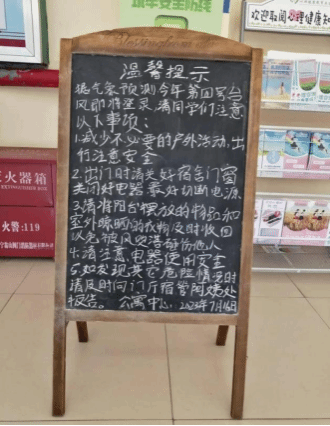 温馨提示
据气象预测今年第四号台
风即将登录,请同学们注意
以下事项:
1.减少不必要的户外活动,出
行注意安全
2.出门时请关好宿舍门窗
关闭好电器最好切断电源
3.请将阳台摆放的物和
室外晾晒的衣物及时收回
以免被风吹落砸伤他人
4.请注意电器使用安全
5.如发现其它危险情况时
请及时向门厅宿管阿姨处
报告。公寓中心 2023年7月16日
灭火器箱
EXTINGUISHER BOX
火警:119
欢迎取阅心理健康知